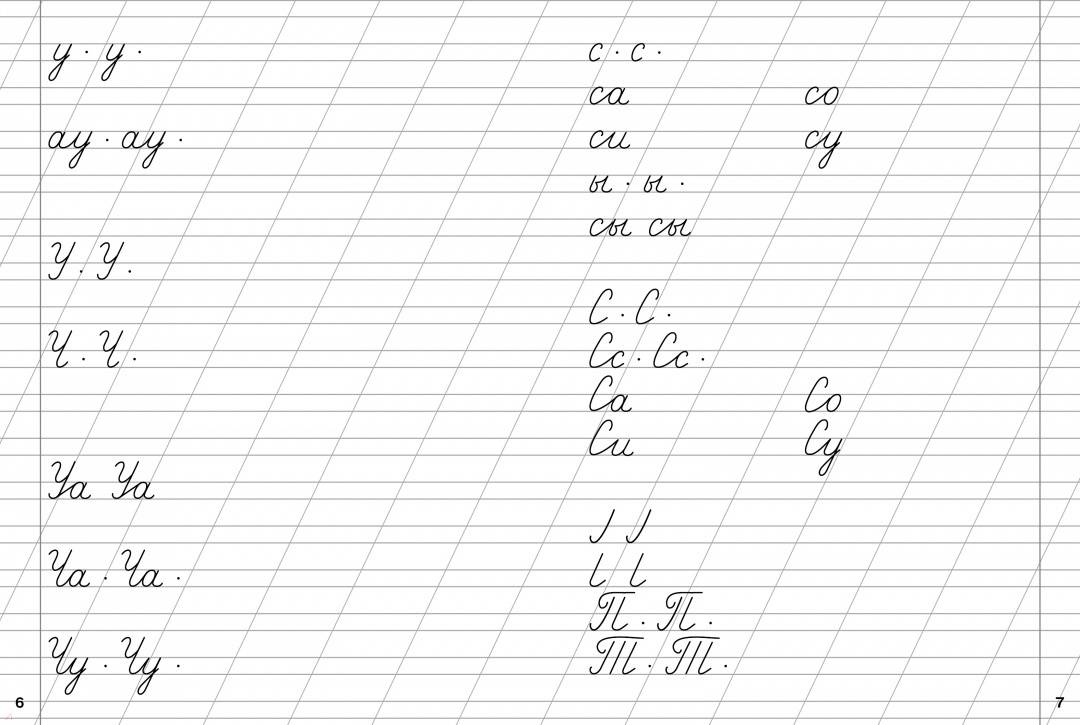 у · у ·
ау · ау ·
У . У .
Ч . Ч .
Уа Уа
Ча · Ча ·
Чу · Чу ·
6
с · с ·
са со
си су
ы · ы ·
сы сы
С · С ·
Сс · Сс ·
Са Со
Си Су
П . П .
Т . Т .
7